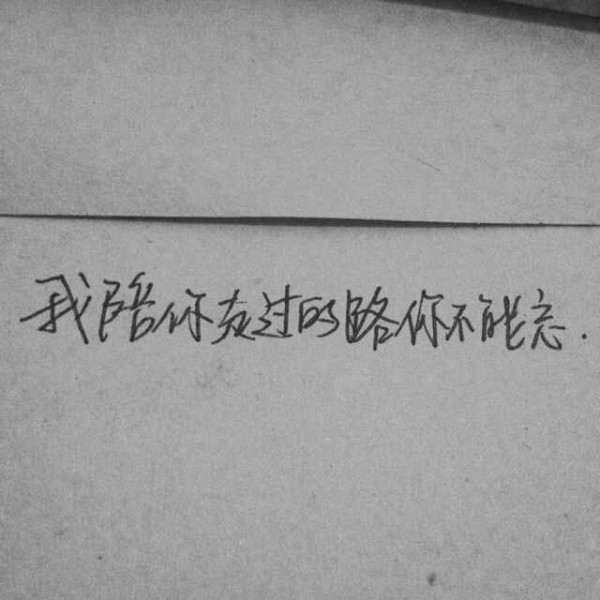 我陪你走过的路你不能忘.